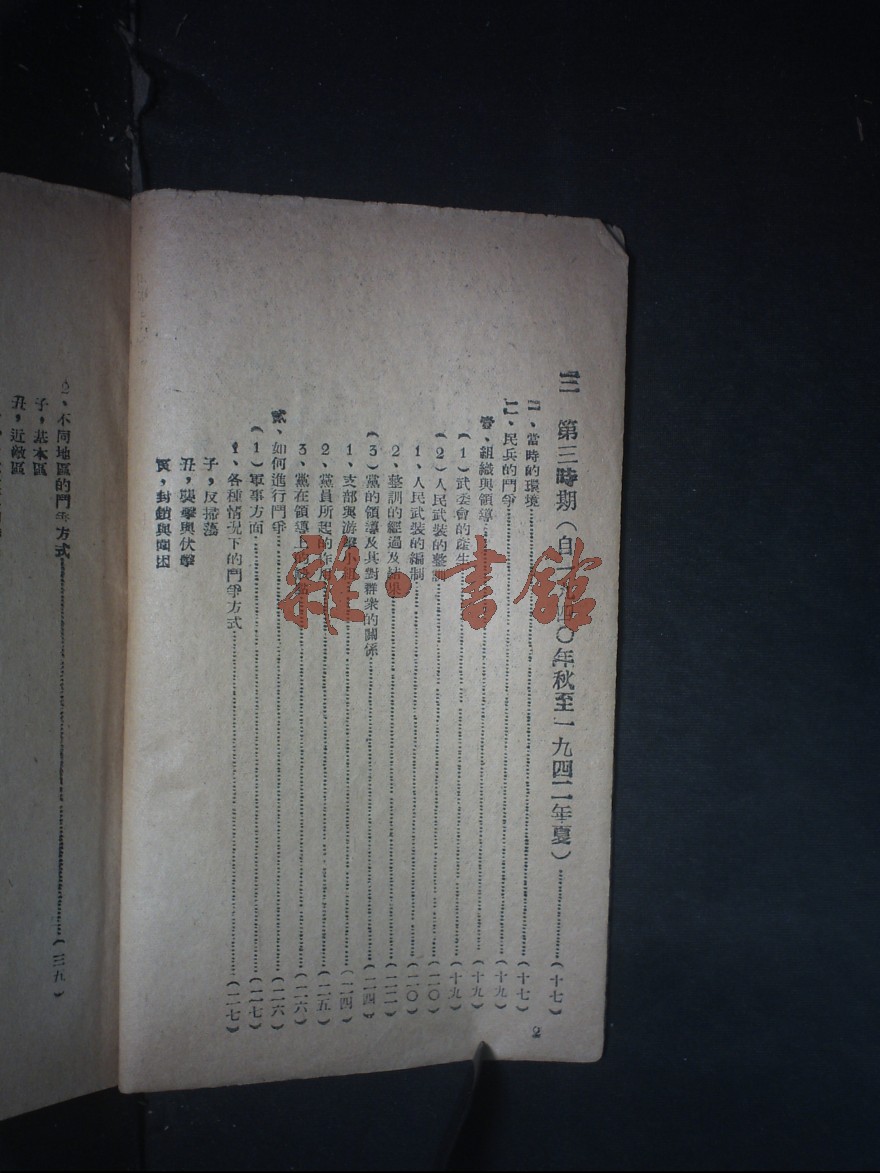 三 第三時期（自一九四〇年秋至一九四二年夏）……（十七）
一、當時的環境……（十七）
二、民兵的鬥爭……（十九）
壹、組織與領導……（十九）
（1）武委會的產生……（十九）
（2）人民武裝的整訓……（二〇）
1、人民武裝的編制……（二〇）
2、整訓的經過及結果……（二二）
（3）黨的領導及其對群衆的關係……（二四）
1、支部與游擊小組……（二四）
2、黨員所起的作用……（二五）
3、黨在領導上的……（二六）
貳、如何進行鬥爭……（二六）
（1）軍事方面……（二七）
1、各種情況下的鬥爭方式……（二七）
子，反掃蕩
丑，襲擊與伏擊
寅，封鎖與圍困
2
2、不同地區的鬥爭方式……（三五）
子，基本區
丑，近敵區
雜·書館